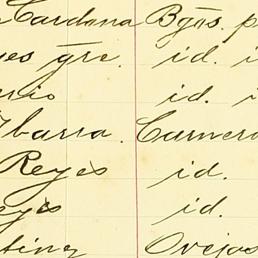 Cardona Bgos. p
es gre. id. i
rio id. i
Ibarra. Carnero
Reyes id.
eyes id.
tinez Ovejos